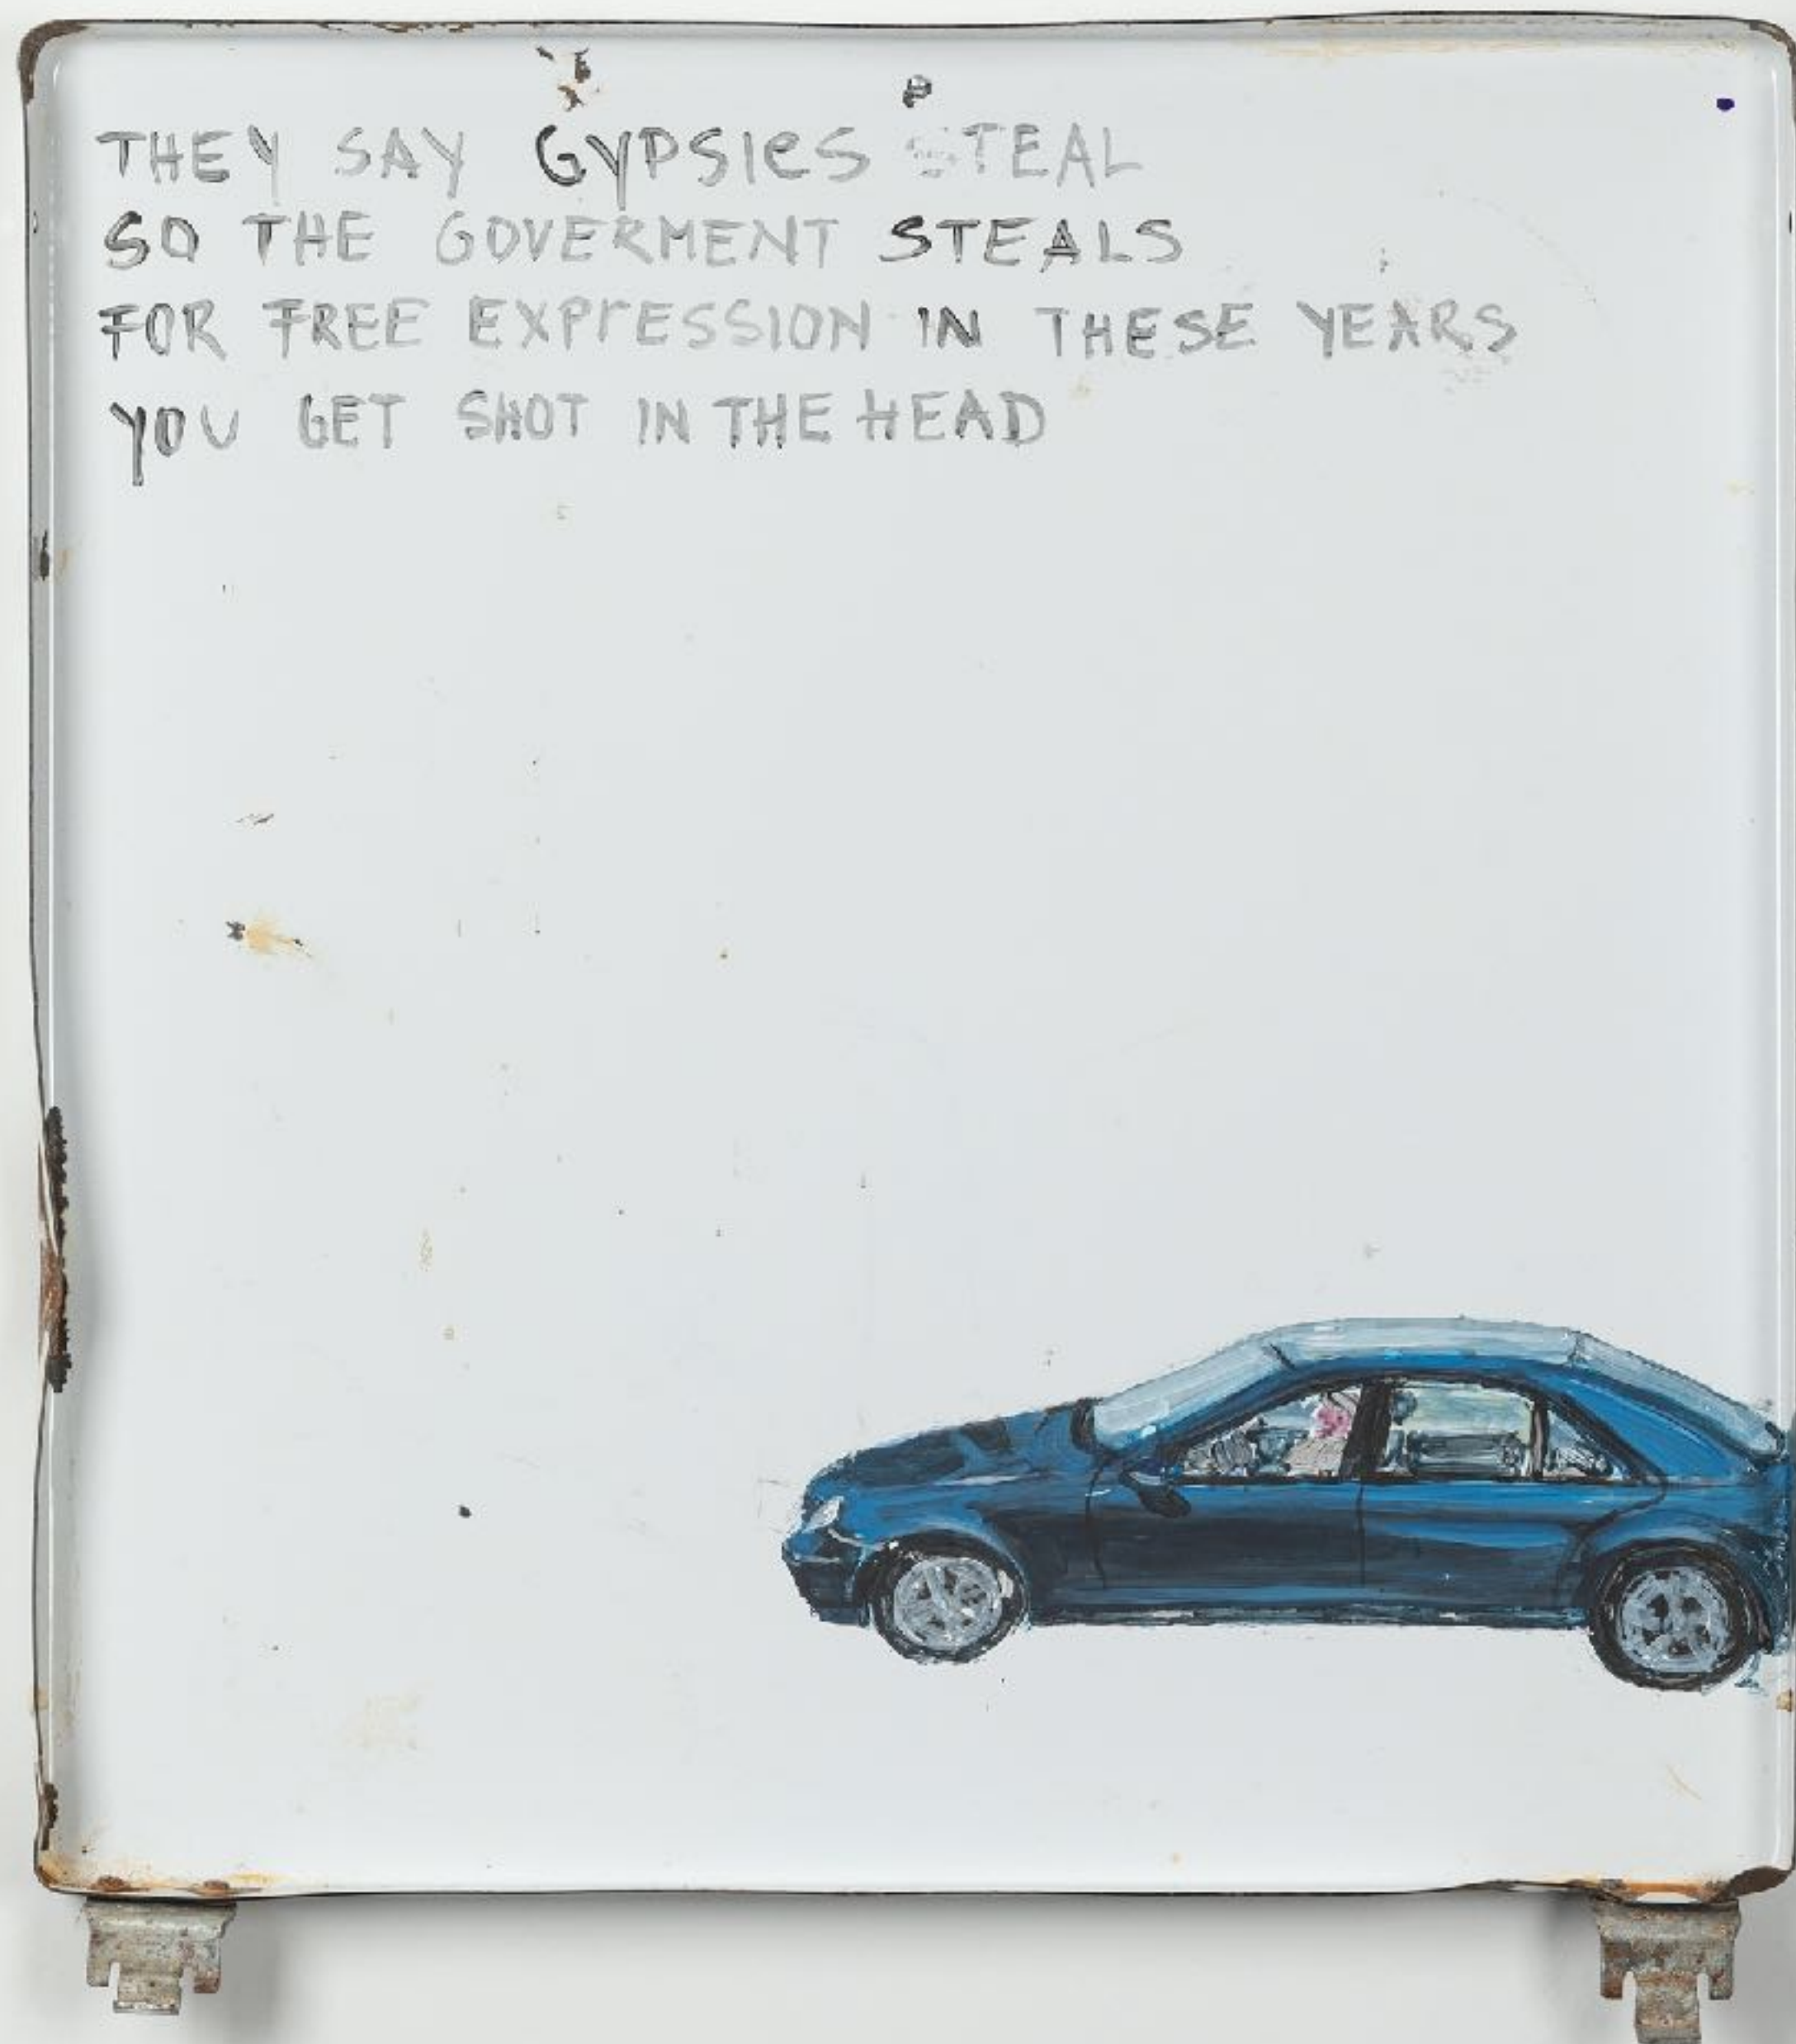 THEY SAY GYPSIES STEAL
SO THE GOVERMENT STEALS
FOR FREE EXPRESSION IN THESE YEARS
YOU GET SHOT IN THE HEAD